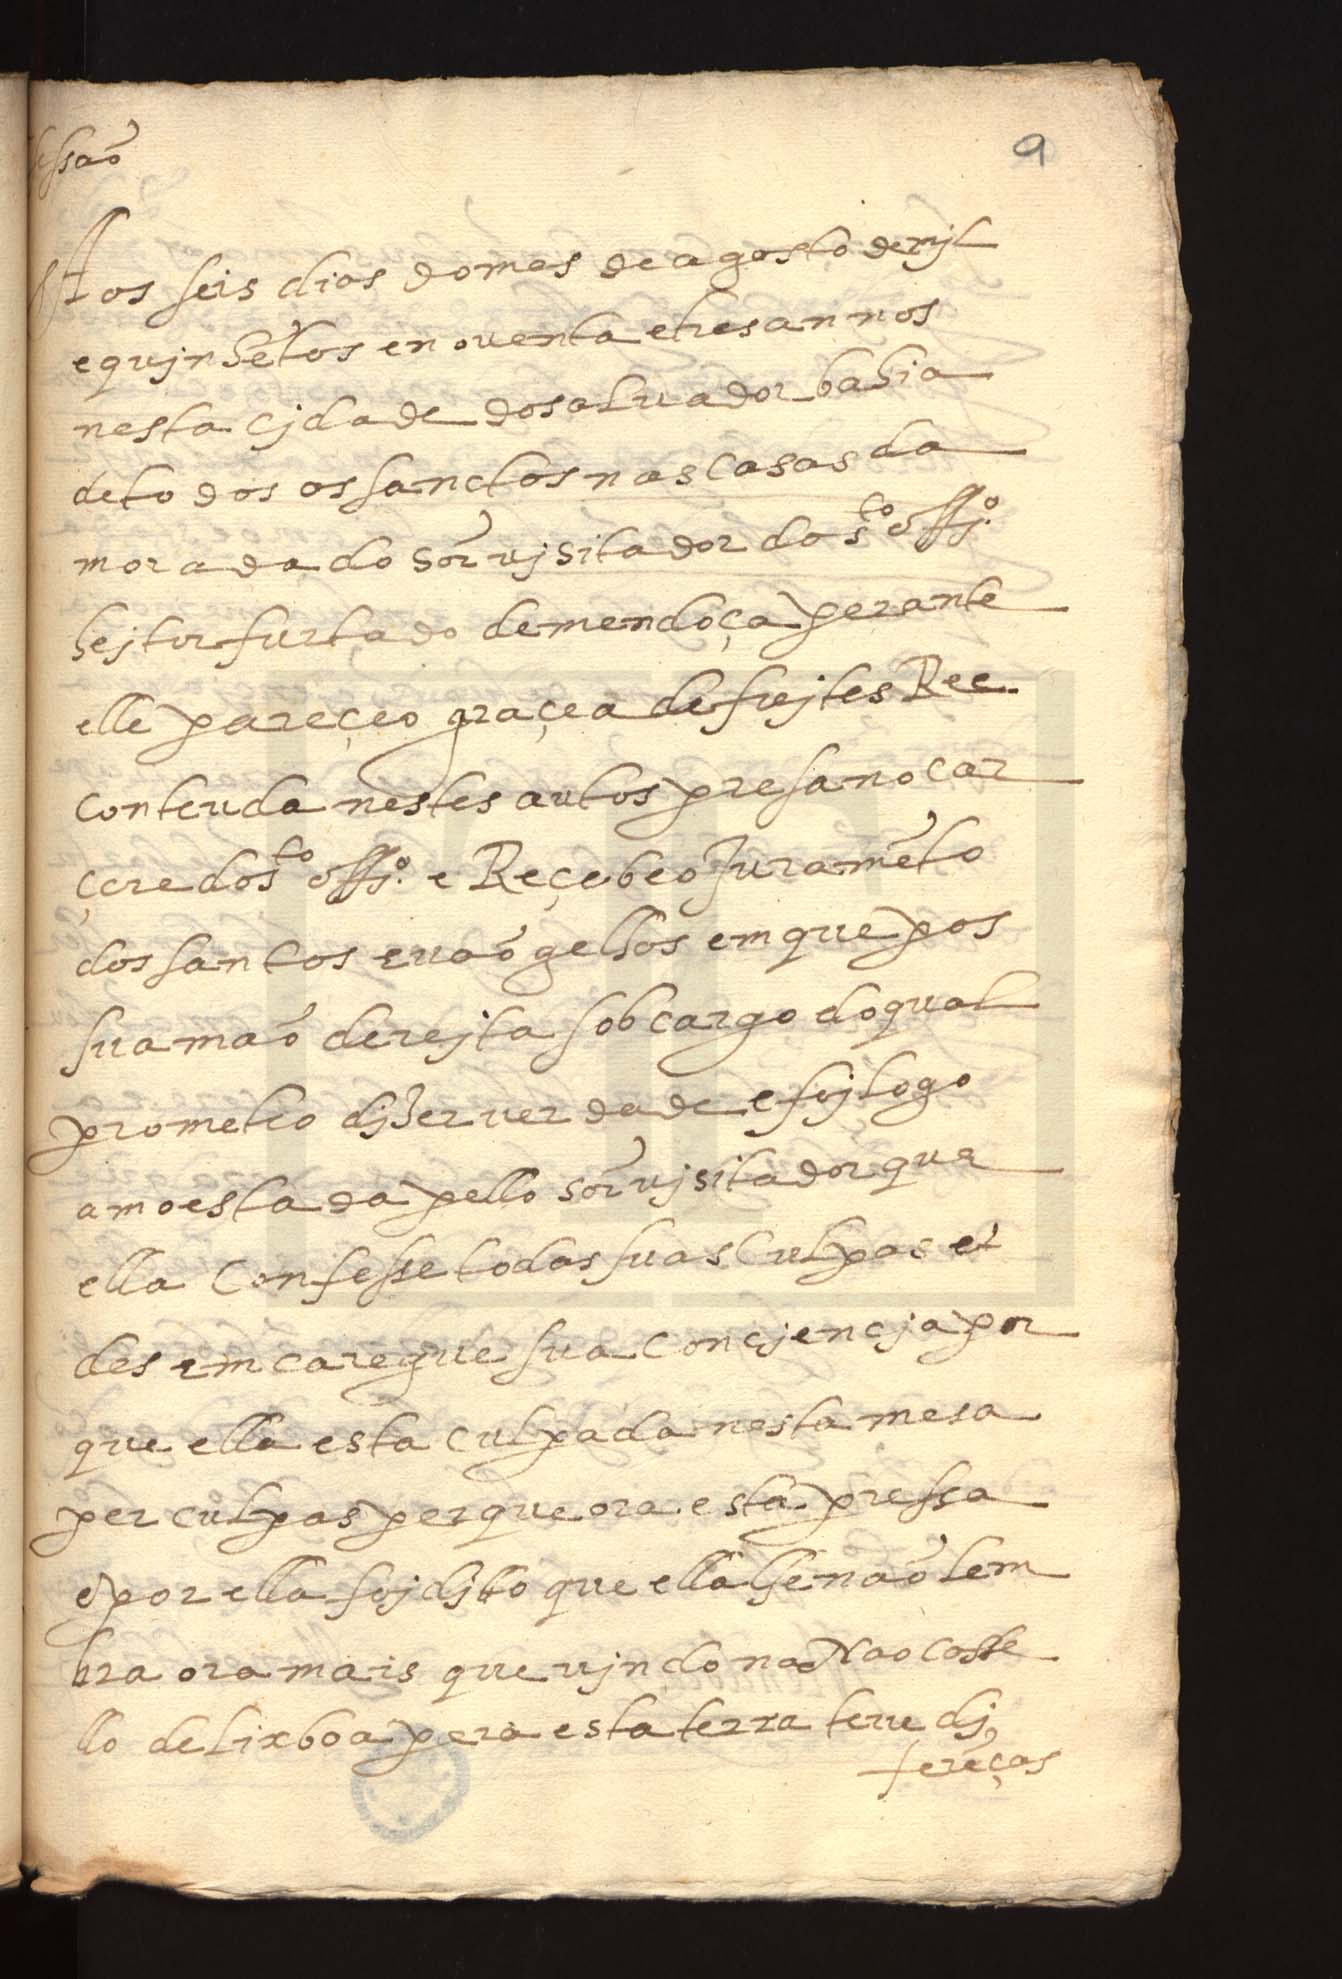 ssaõ
9
Aos seis dias do mes de agosto de mjl
e qujnhẽtos e noventa e tres annos
nesta cjdade do saluador bahia
de todos os sanctos nas casas da
morada do sõr vjsitador do sto offjo.
hejtor furtado de mendoça perante
elle pareçeo graçea de frejtes Ree
contenda nestes autos presa no car
çere do sto offjo. e Reçebeo Juramẽto
dos santos evaõgelhos em que pos
sua maõ derejta sob cargo do qual
prometeo djzer verdade e foj logo
amoestada pello sõr vjsitador que
ella confesse todas suas culpas e
desemcaregue sua concjencja por
que ella esta culpada nesta mesa
per culpas per que ora esta pressa
e por ella foj djto que ella lhe naõ lem
bra ora mais que vjndo na Nao caste
llo de lixboa pera esta terra teve dj
ferẽças